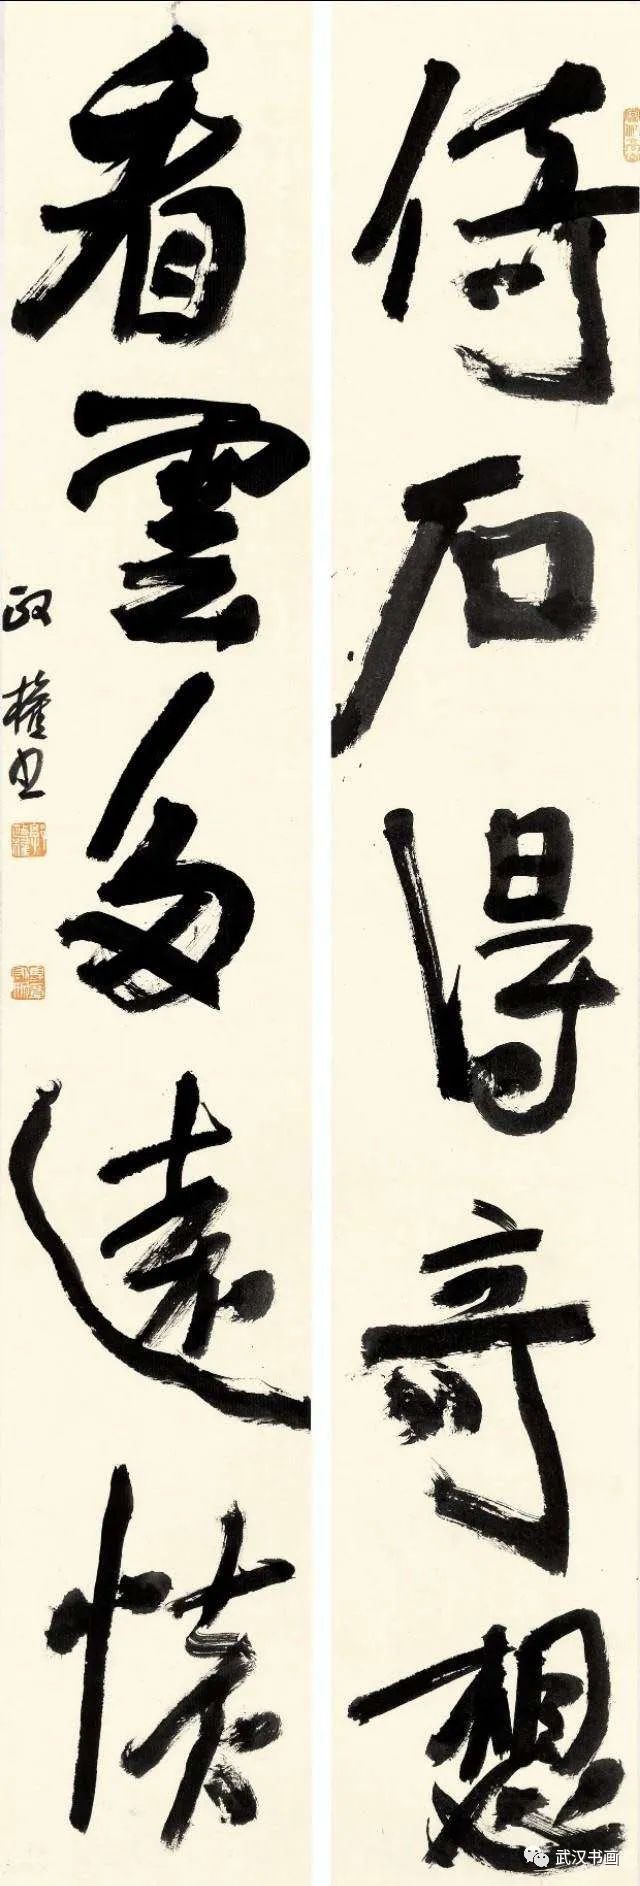 倚石得奇想
看雲多遠懷
政權书
武汉书画